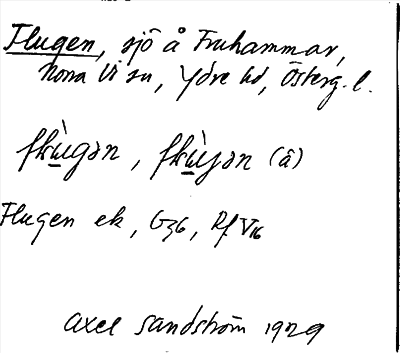 Flugen, sjö å Fruhammar,
Norra Vi sn, Ydre hd, Österg. l.
flɯ̀gən, flɯ̀jən (â)
Flugen ek, G36, Rf V16
Axel Sandström 1929